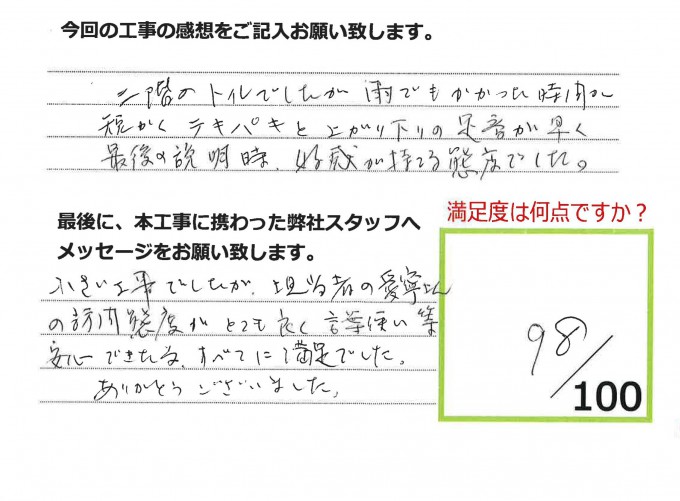 今回の工事の感想をご記入お願い致します。
二階のトイレでしたが 雨でもかかった時間が
短かく テキパキと上がり下りの足音が早く
最後の説明時、好感が持てる態度でした。
満足度は何点ですか？
最後に、本工事に携わった弊社スタッフへ
メッセージをお願い致します。
小さい工事でしたが、担当者の愛寧さん
の訪問態度がとても良く 言葉使い等
安心できたる、すべてに満足でした。
ありがとうございました。
98/100